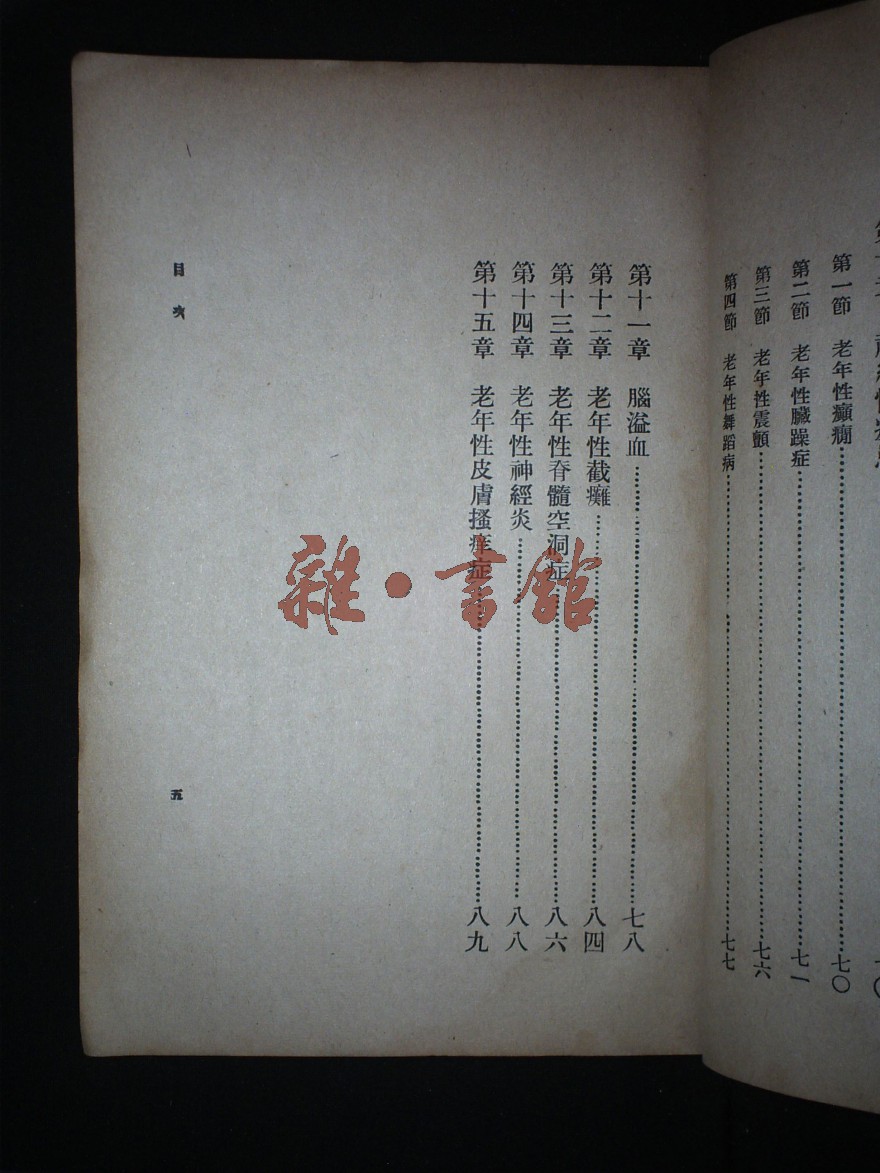 第一節　老年性癲癇……七〇
第二節　老年性臟躁症……七一
第三節　老年性震顫……七六
第四節　老年性舞蹈病……七七
第十一章　腦溢血……七八
第十二章　老年性截癱……八四
第十三章　老年性脊髓空洞症……八六
第十四章　老年性神經炎……八八
第十五章　老年性皮膚搔痒症……八九
目次
五
雜·書館